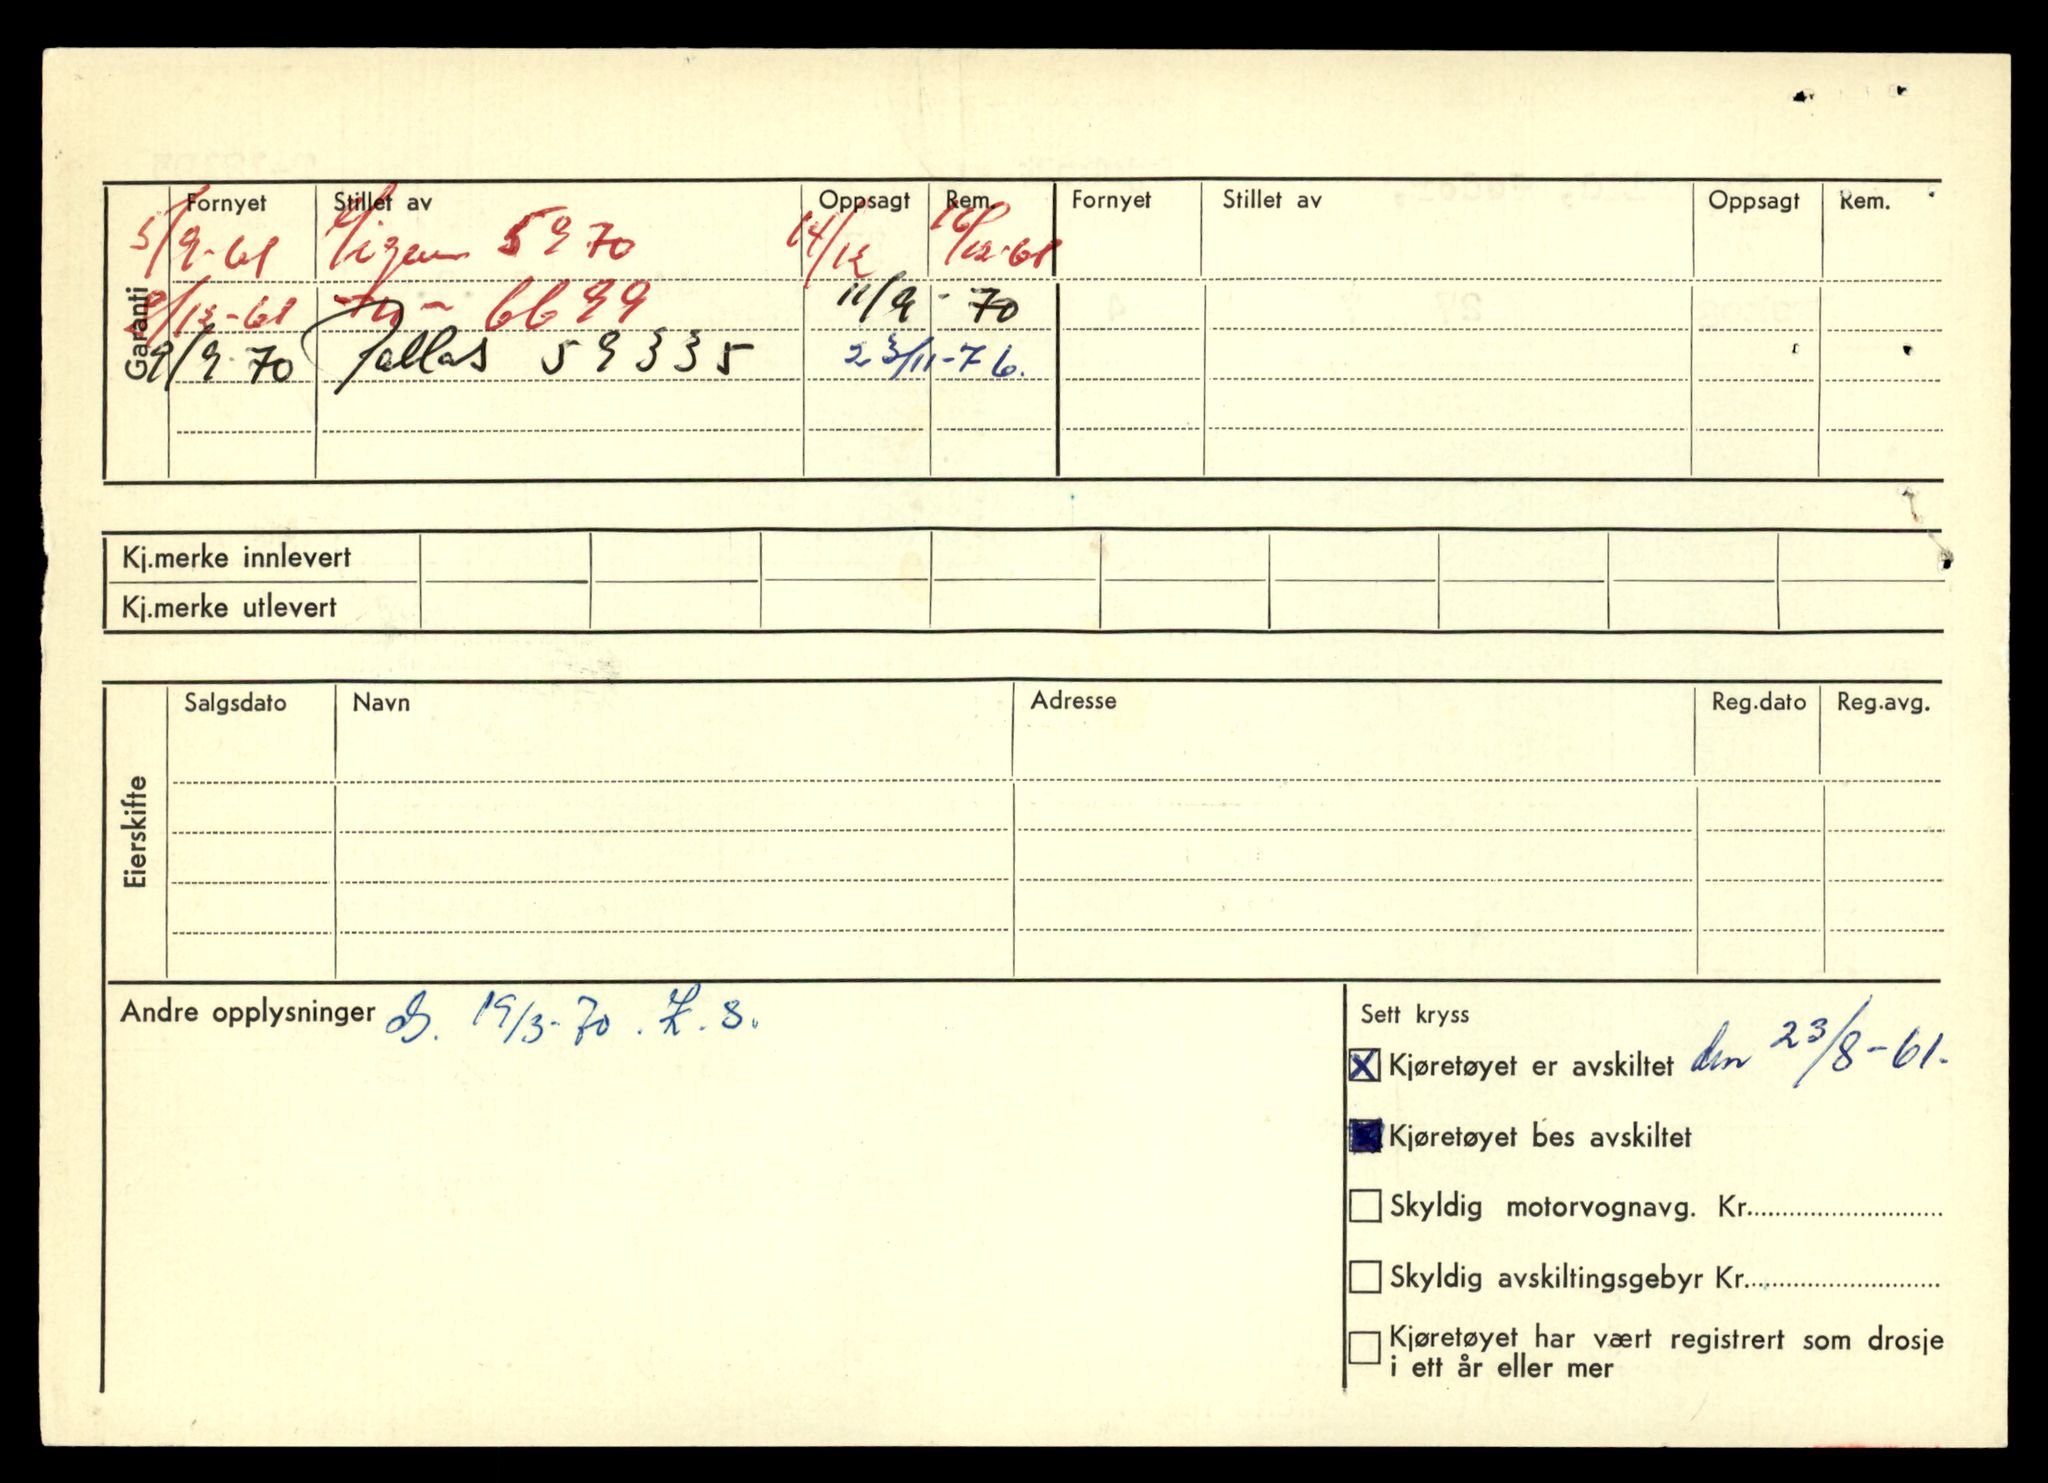 Garanti
Fornyet Stillet av Oppsagt Rem. Fornyet Stillet av Oppsagt Rem.
5/9-61 5970 14/12 16/12-61
/12-61 -"- 6699 11/9-70
9/9-70 Pallas 59335 23/11-76.
Kj.merke innlevert
Kj.merke utlevert
Eierskifte
Salgsdato Navn Adresse Reg.dato Reg.avg.
Andre opplysninger 19/3-70.
Sett kryss
Kjøretøyet er avskiltet den 23/8-61.
Kjøretøyet bes avskiltet
Skyldig motorvognavg. Kr.
Skyldig avskiltingsgebyr Kr.
Kjøretøyet har vært registrert som drosje
i ett år eller mer